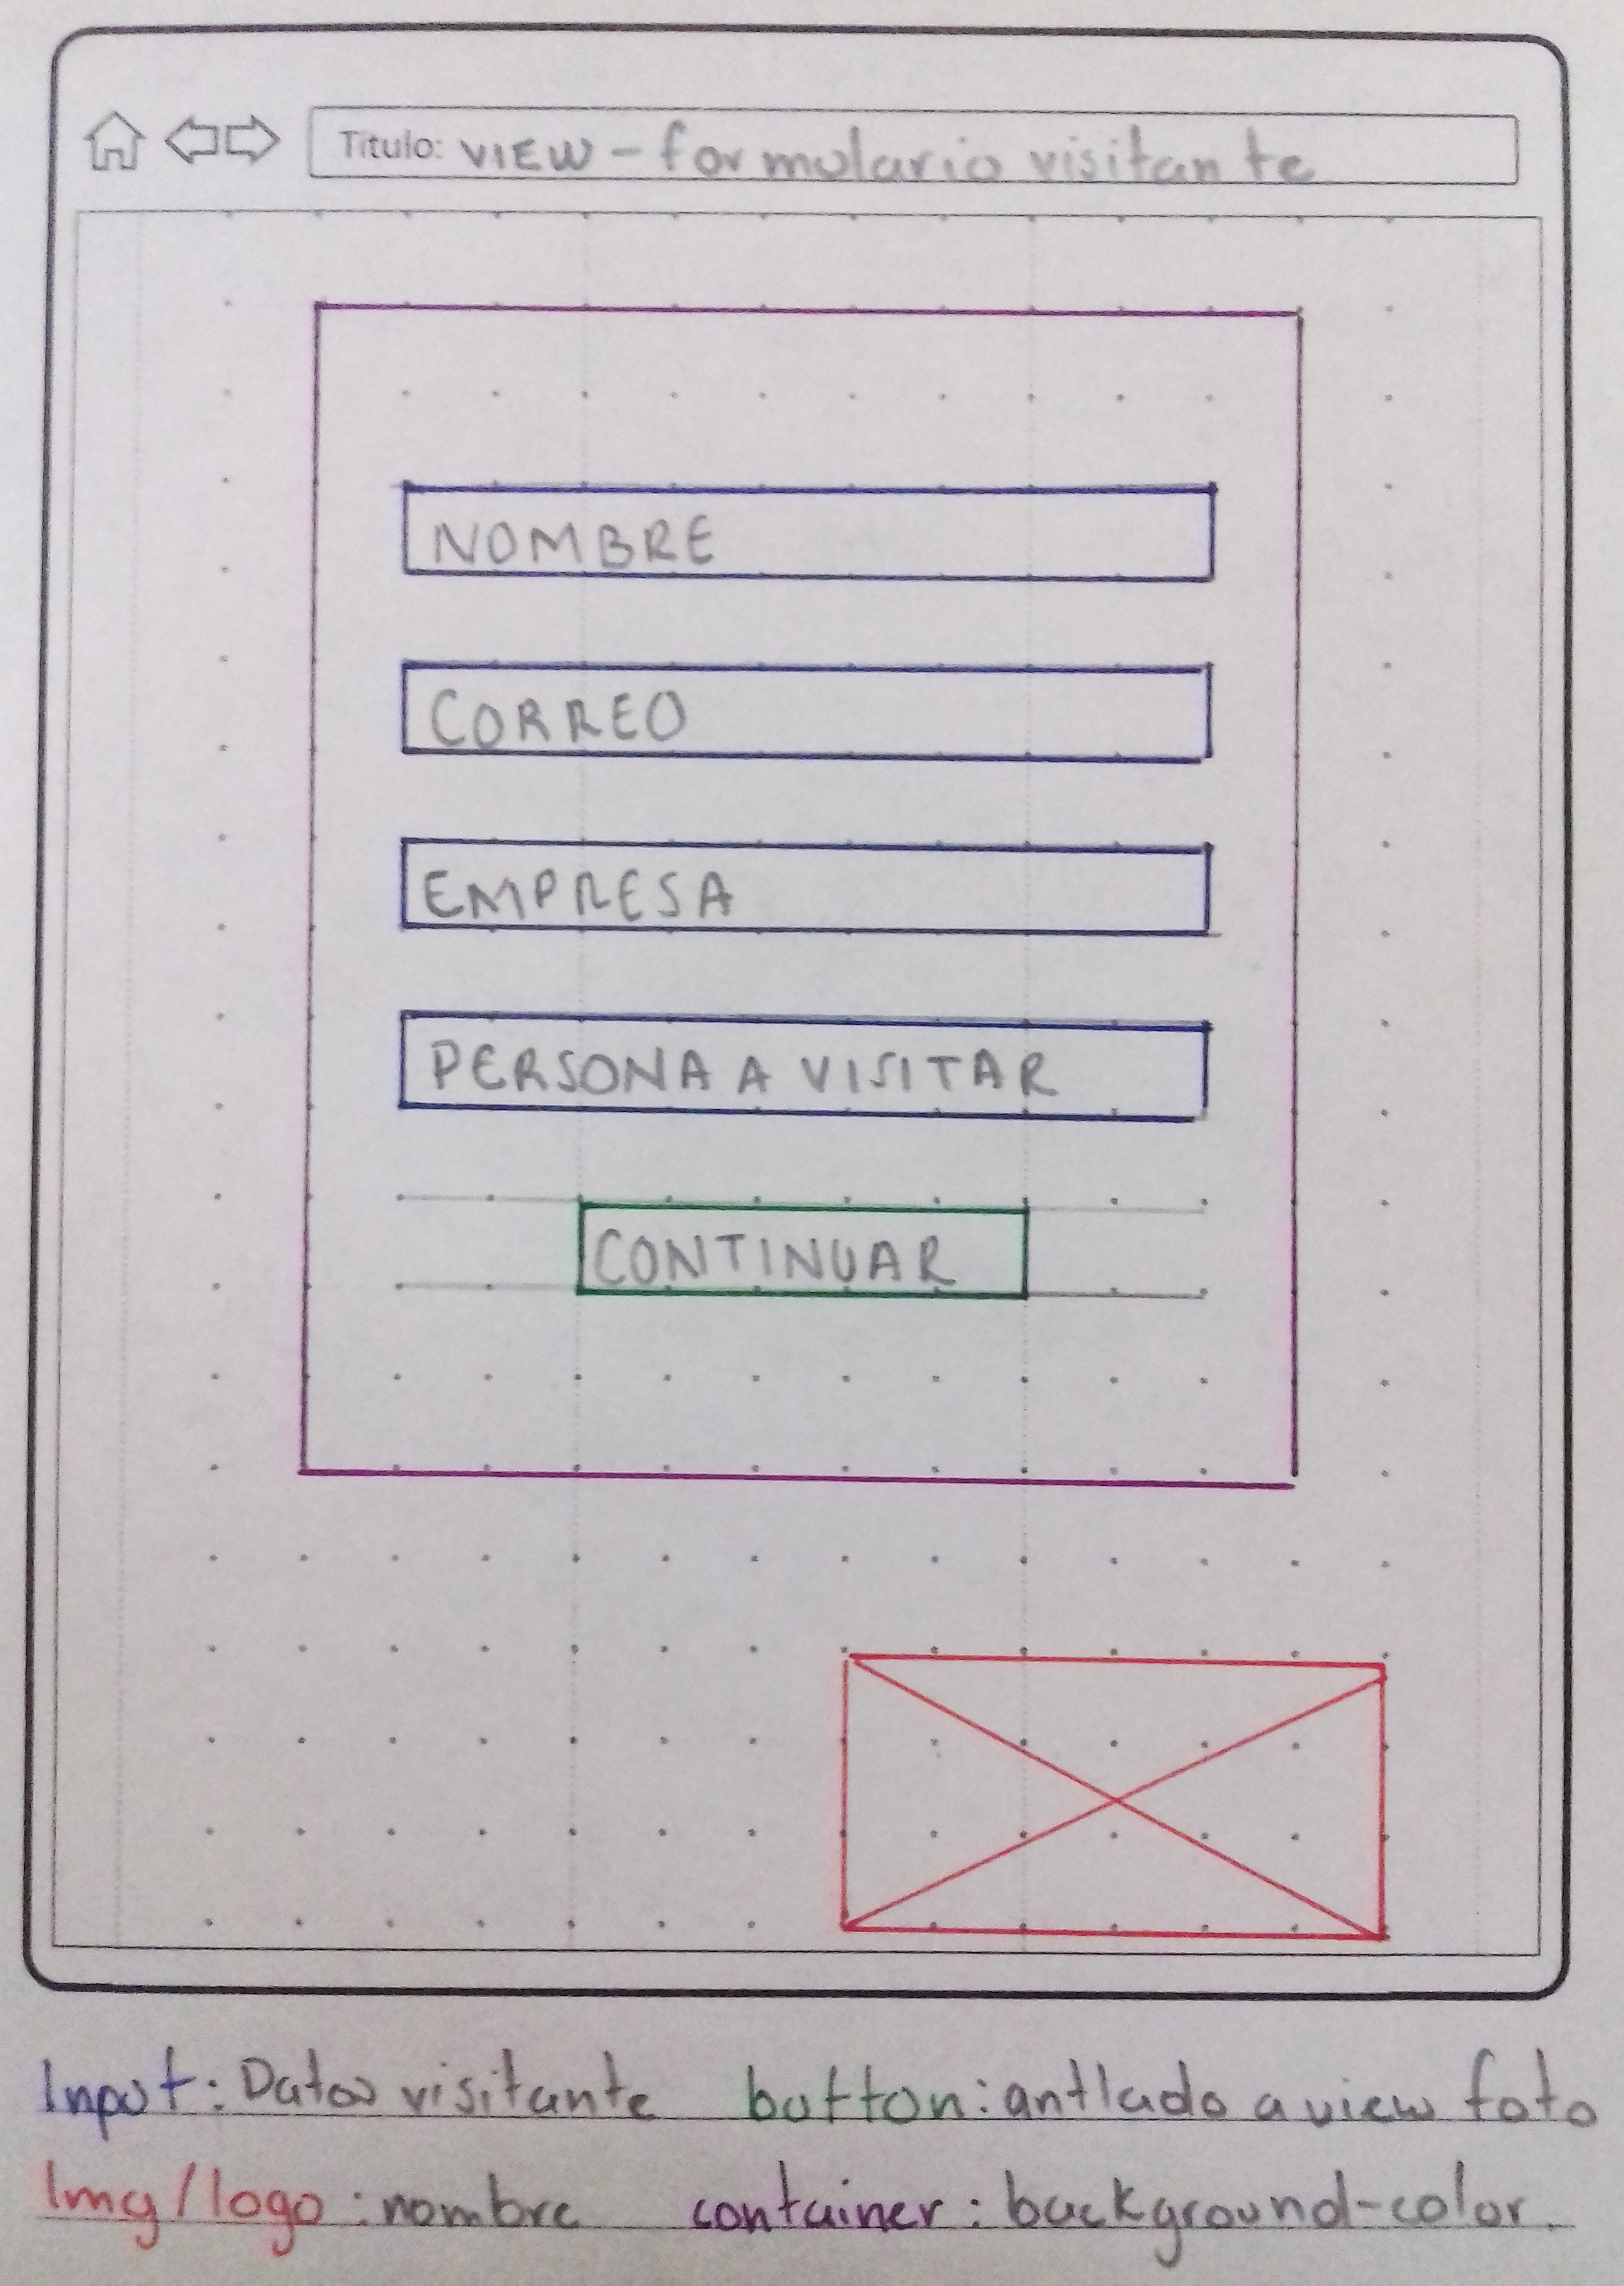 Titulo: VIEW - formulario visitante
NOMBRE
CORREO
EMPRESA
PERSONA A VISITAR
CONTINUAR
Input: Datos visitante button: antlado a view foto
Img/logo: nombre container: background-color.